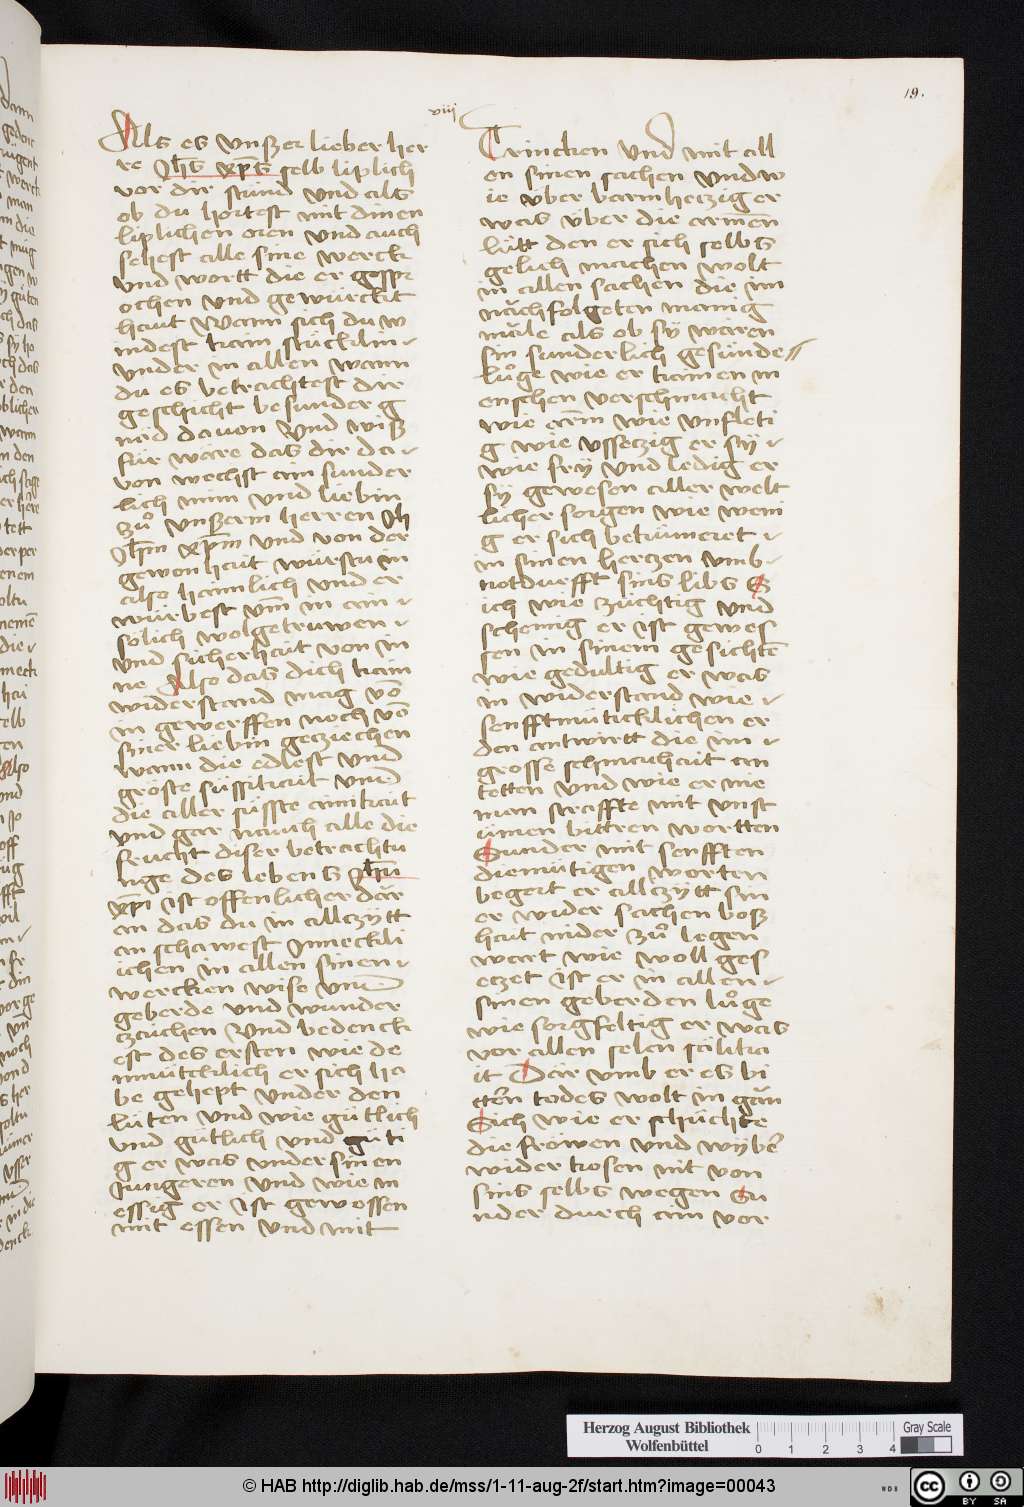 19.
viij
Als es vnßer lieber her
re Jhs xps selb liplich
vor dir stúnd vnd als
ob du hortest mit dinen
liplichen oren vnd auch
sehest alle sine werck
vnd wortt die er gespr
ochen vnd gewúrckt
haut Wann sich du w
indest kain stúcklin
vnder in allen wann
du es betrachtest dir
geschicht besunder g
nǎd dauon Vnd wiß
für wäre das dir da
von wechst ain sunder
lich minn vnd liebin
zuͦ vnßerm herren Jh
Jhm xpm vnd von der
gewonhait würstu in
also haimlich vnd er
würbest vm in ain
sölich wolgetruwen
vnd sicherhait von in
ne Also das dich kain
widerstand mag vō
in gewerffen noch vō
siner liebin geziechen
wann die edlest vnd
gröste süssikait vnd
die aller süsste ainikait
vnd gar nauch alle die
frucht diser betrachtu
nge des lebens Jhū
xpi ist offenlicher dar
an das du in allczytt
an schawest Inneckli
ichen in allen sinen
wercken wise vnd
geberde vnd wunder
zaichen Vnd bedenck
est des ersten wie de
mütcklich er sich ha
be gehept vnder den
lüten vnd wie gütlich
vnd gütlich vnd güti
g er was vnder sinen
Jungeren vnd wie m
essig er ist gewessen
mit essen vnd mit
Trincken vnd mit all
en sinen sachen vnd w
ie über barmherzig er
was über die armen
lütt den er sich selbs
gelich machen wolt
in allen sachen die im
nǎchfolgeten manig
mǎle als ob sy wären
sin sunderlich gesünde
luͦge wie er kainen m
enschen verschmacht
wie arm wie vnfleti
g wie vssezig er sy
wie fry vnd ledig er
sy gewesen aller welt
licher sorgen wie weni
g er sich bekümeret
in sinen herczen vmb
notdurfft sins libs S
ich wie züchtig vnd
schemig er ist gewes
sen in sinem gesichte
wie gedultig er was
in widerstand wie
senfftmüticklichen er
den antwirtt die im
grosse schmachait an
tetten vnd wie er nie
man straffte mit vnst
ümen bittren wortten
Sunder mit senfften
diemütigen worten
begert er allczytt sin
er wider sachen boß
hait nider zuͦ legen
wart wie woll ges
eczet ist er in allen
sinen geberden luͦge
wie sorgfeltig er was
vor allen selen sälika
it Där vmb er es bi
ttern todes wolt in gǎn
Sich wie er schüchte
die fröwen vnd wyber
wider kosen nit von
sins selbs wegen Su
nder durch ain vor
Herzog August Bibliothek
Wolfenbüttel
0 1 2 3 4
Gray Scale
© HAB http://diglib.hab.de/mss/1-11-aug-2f/start.htm?image=00043
WDB
cc
BY SA